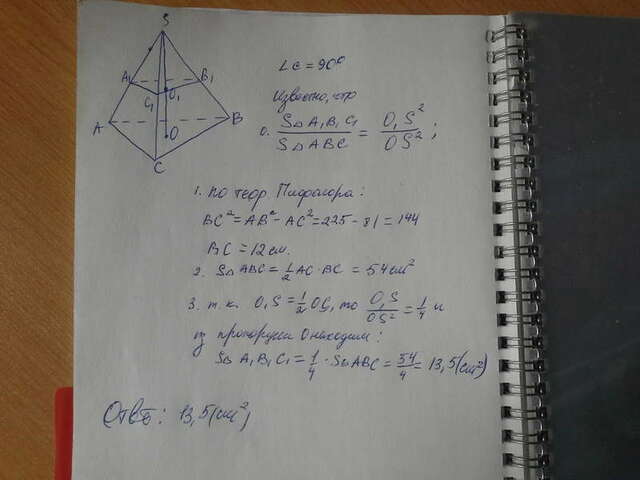 S
A₁
B₁
C₁
O₁
A
B
O
C
∠C = 90°
Известно, что
0. S△A₁B₁C₁ / S△ABC = O₁S² / OS² ;
1. по теор Пифагора:
BC² = AB² - AC² = 225 - 81 = 144
BC = 12 см.
2. S△ABC = 1/2 AC · BC = 54 см²
3. т.к. O₁S = 1/2 OS, то O₁S / OS² = 1/4 и
из пропорции 0 находим:
S△A₁B₁C₁ = 1/4 · S△ABC = 54/4 = 13,5 (см²)
Ответ: 13,5 (см²)